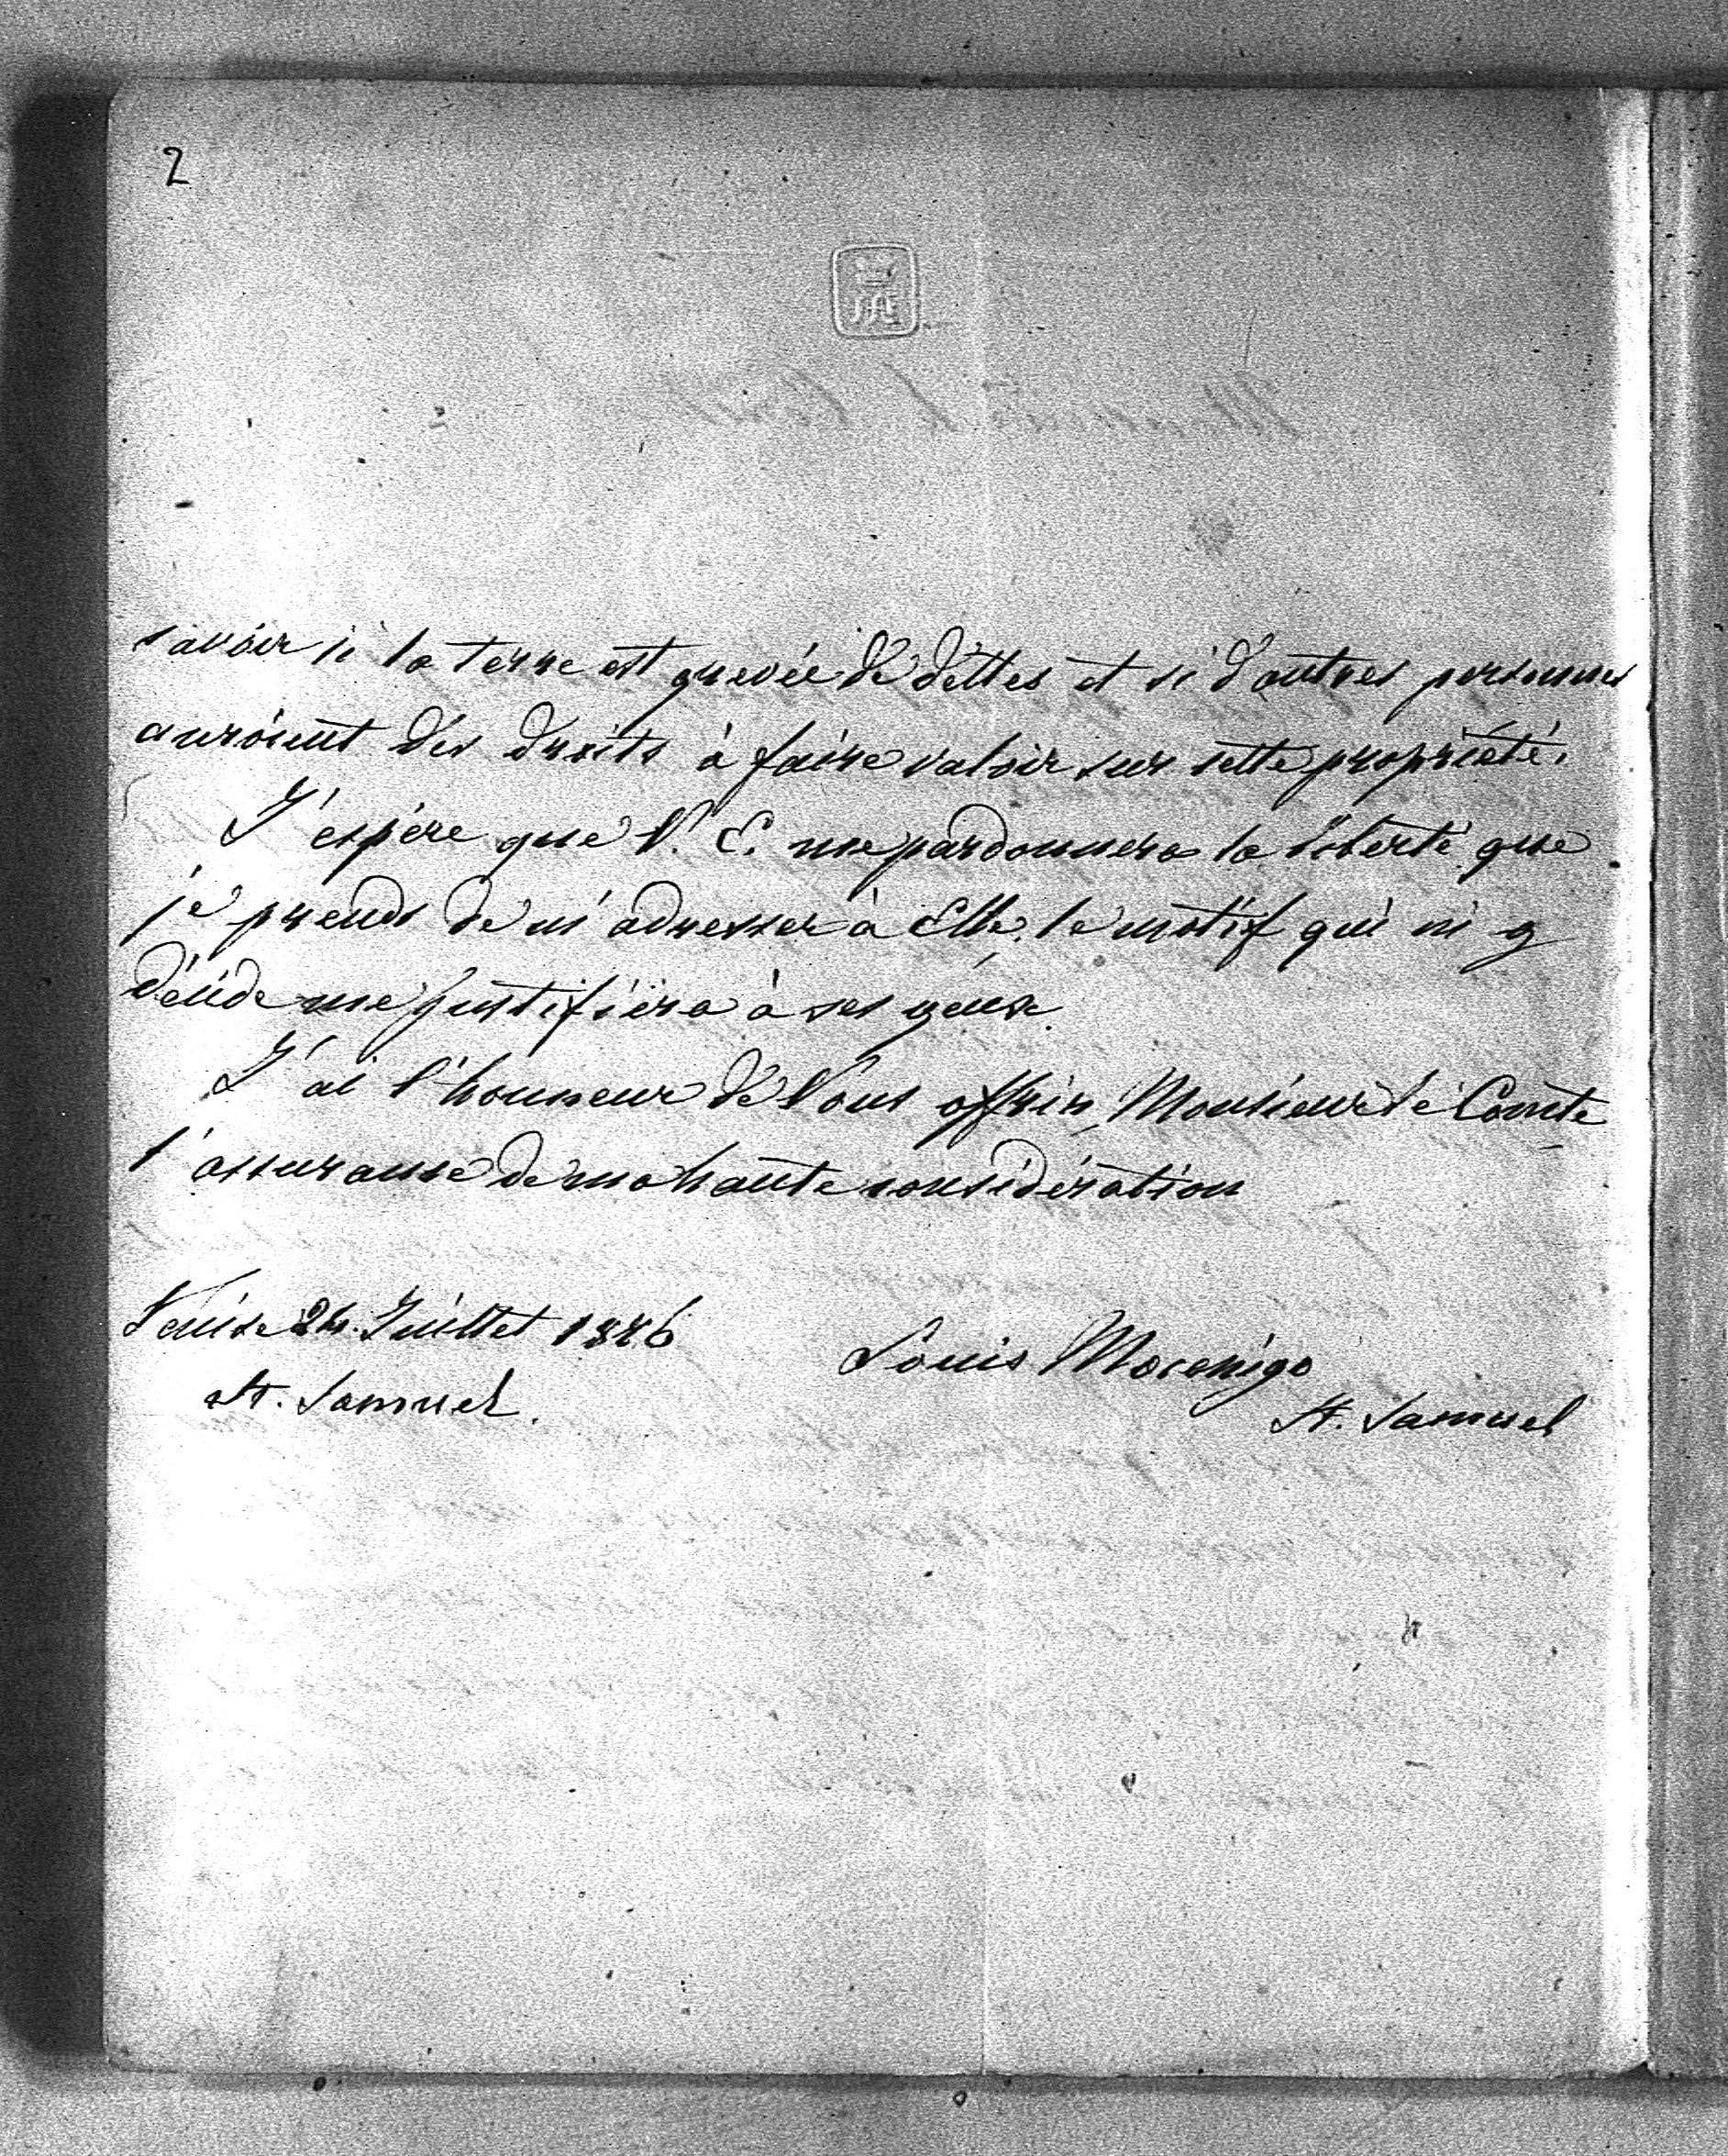 2
savoir si la terre est grevée de dettes et si d'autres personnes
auroient des droits à faire valoir sur cette propriété.
J'espère que V. E. me pardonnera la liberté que
je prends de m'adresser à Elle, le motif qui m'y
décide me justifiera à ses yeux.
J'ai l'honneur de Vous offrir, Monsieur le Comte
l'assurance de ma haute considération
Venise 24. Juillet 1886
St. Samuel.
Louis Mocenigo
St. Samuel